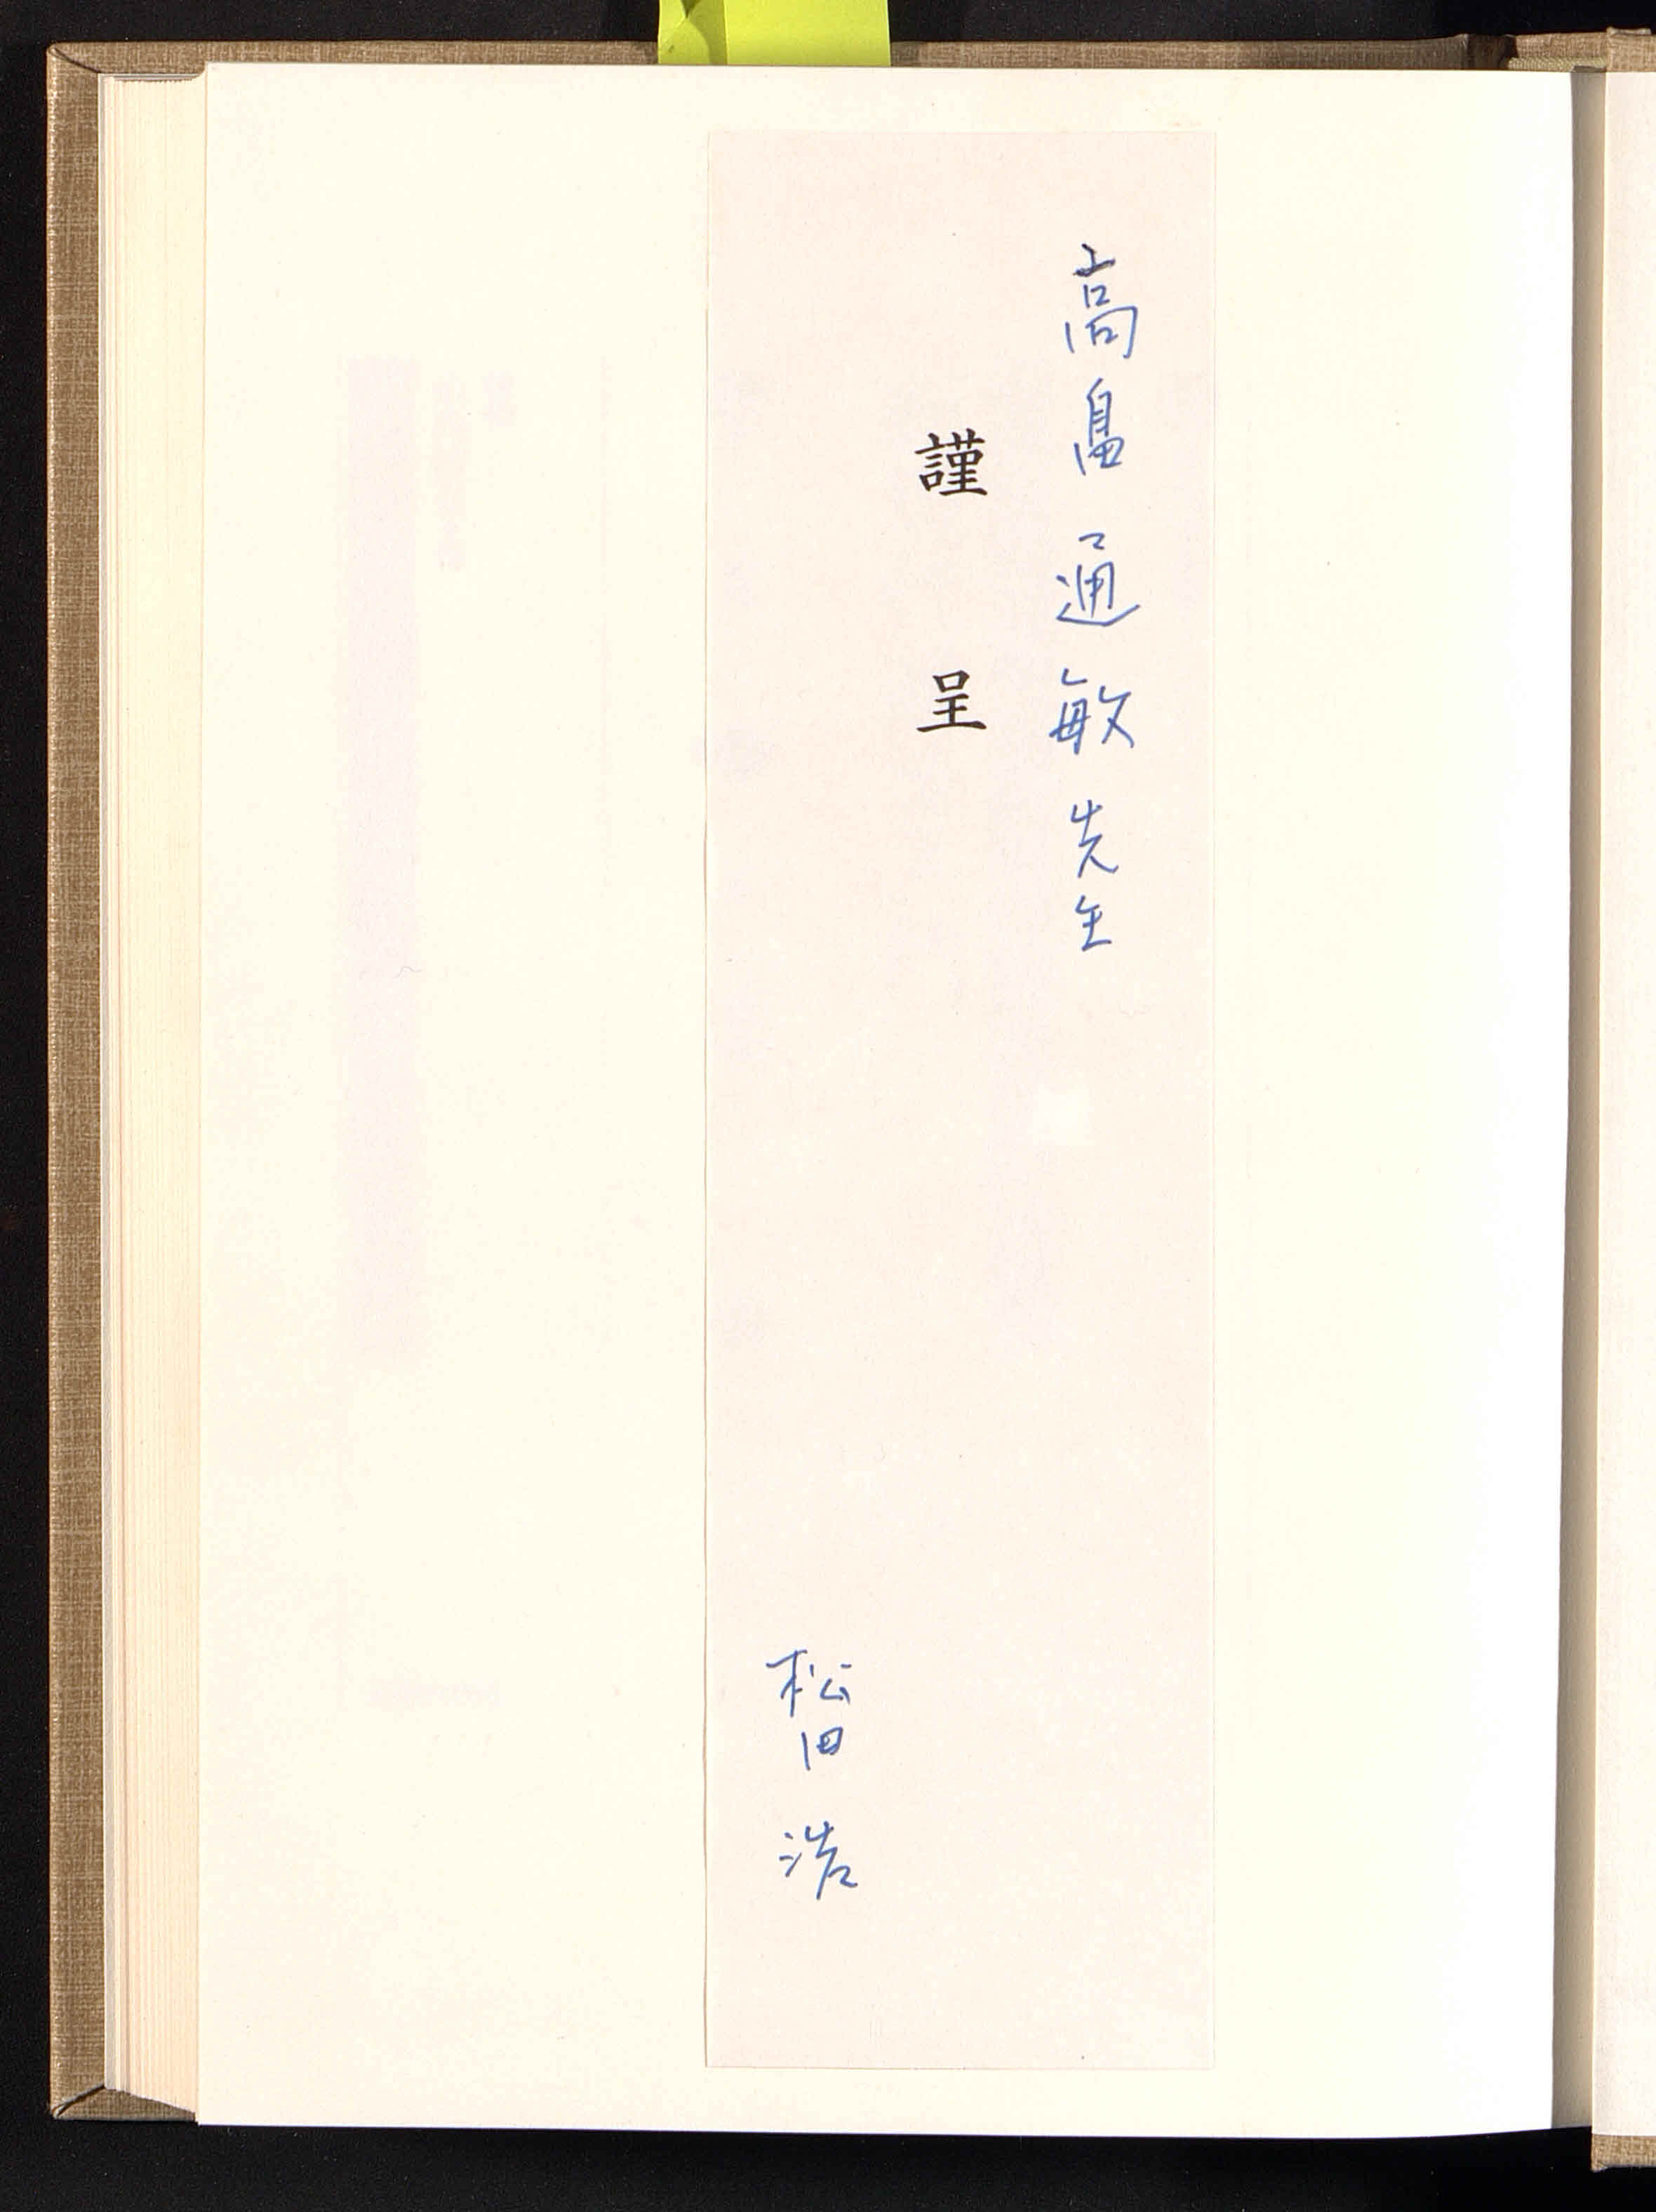 高畠通敏先生
謹呈
松田浩